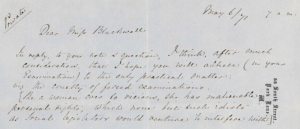 Private
May 6/70 7 a.m.
Dear Miss Blackwell
In reply to your note & question, I think, after much
consideration that I hope you will adhere (in your
Examination) to the only practical matter:
viz. the cruelty of forced examinations.
[As a woman, over 20 years, she has inalienable
personal rights, which none but such idiots
as Social legislators would venture to interfere with]
35 South Street,
Park Lane,
W.